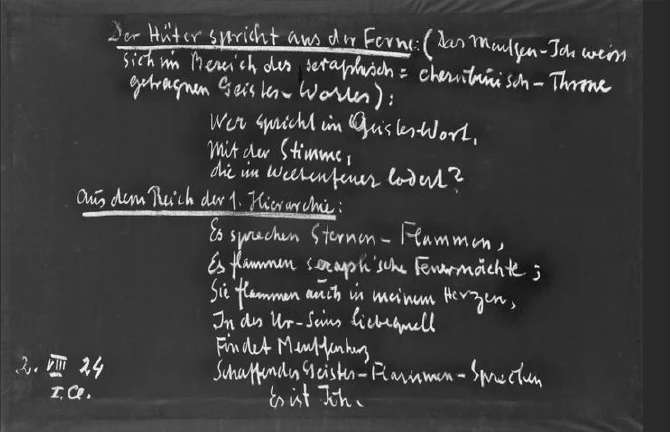 Der Hüter spricht aus der Ferne: (Das Menschen-Ich weiss
sich im Bereich des seraphisch = cherubinisch - Throne
getragnen Geistes-Wortes):
Wer spricht im Geistes-Wort,
Mit der Stimme,
die im Weltenfeuer lodert?
Aus dem Reich der 1. Hierarchie:
Es sprechen Sternen - Flammen,
Es flammen seraph'sche Feuermächte;
Sie flammen auch in meinem Herzen,
In des Ur-Seins Liebequell
Findet Menschenherz
Schaffendes Geistes-Flammen-Sprechen
Es ist Ich.
2. VIII 24
I. Cl.